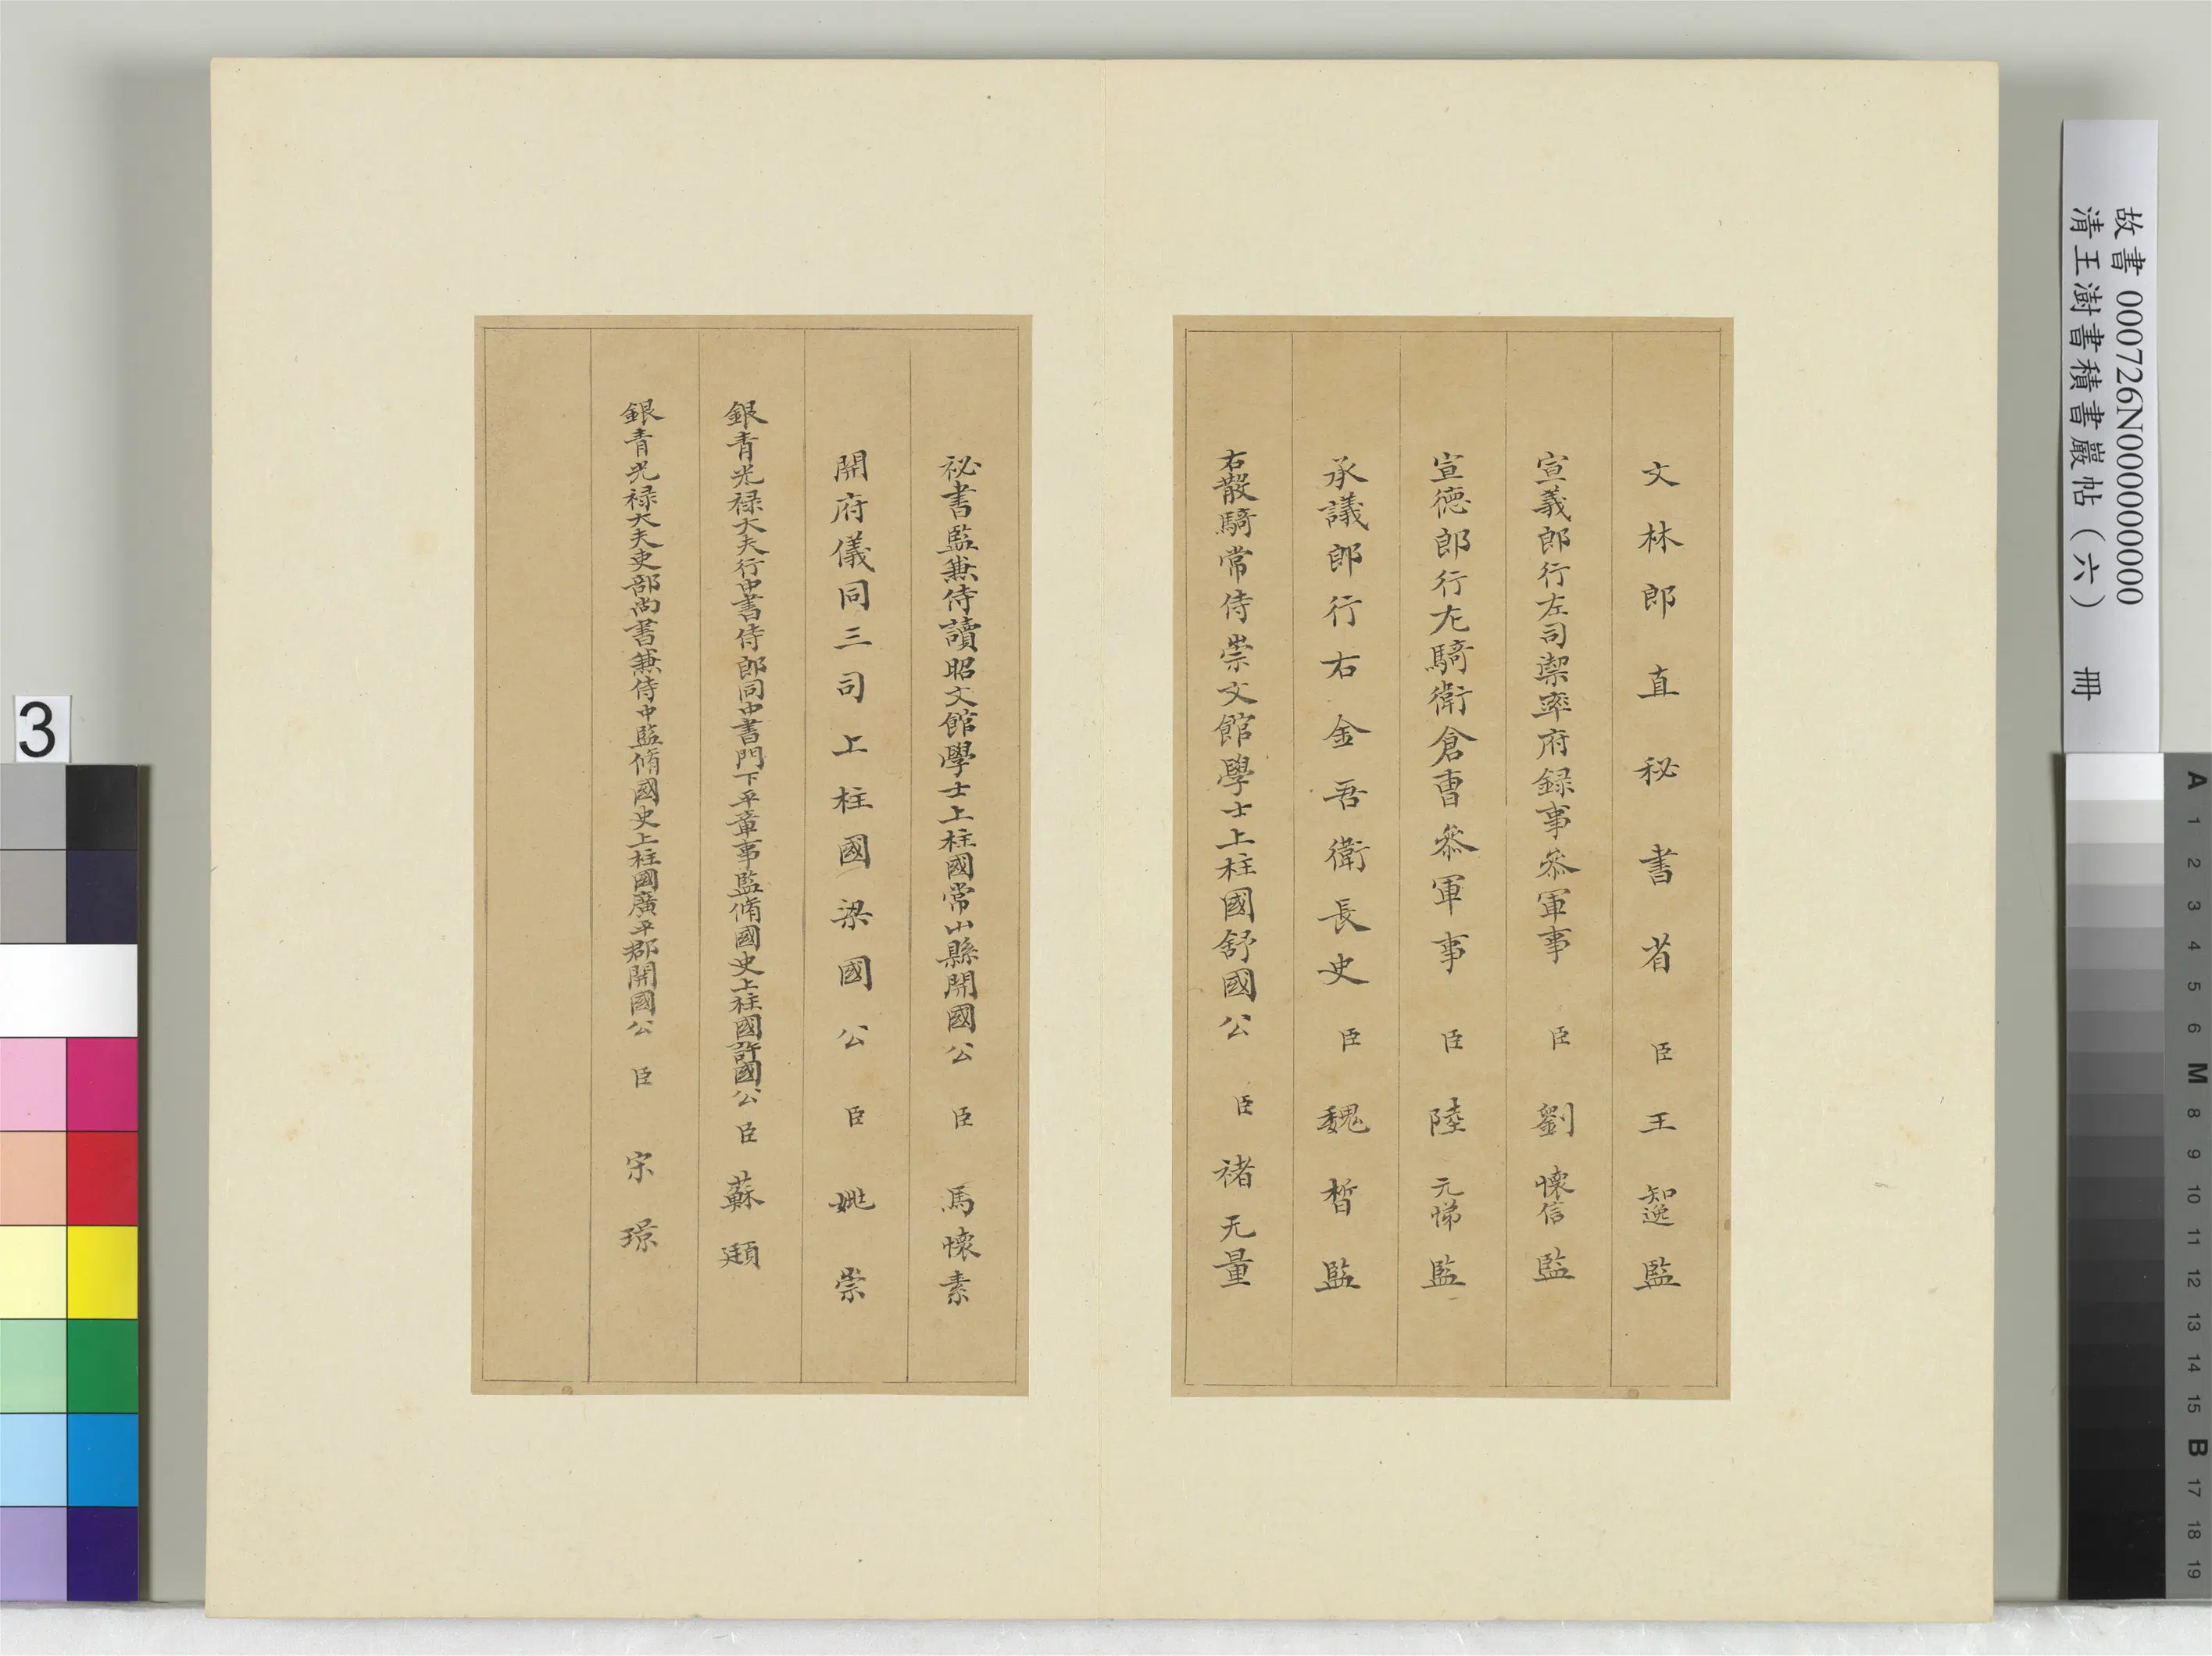 文林郎直秘書省臣王知逸監
宣義郎行左司禦率府録事叅軍事臣劉懷信監
宣德郎行左騎衛倉曹叅軍事臣陸元悌監
承議郎行右金吾衛長史臣魏晢監
右散騎常侍崇文館學士上柱國舒國公臣褚无量
祕書監兼侍讀昭文館學士上柱國常山縣開國公臣馬懷素
開府儀同三司上柱國梁國公臣姚崇
銀青光祿大夫行中書侍郎同中書門下平章事監脩國史上柱國許國公臣蘇頲
銀青光祿大夫吏部尚書兼侍中監脩國史上柱國廣平郡開國公臣宋璟
故書 000726N000000000
清王澍書積書巖帖（六） 冊
3
A
1
2
3
4
5
6
M
8
9
10
11
12
13
14
15
B
17
18
19